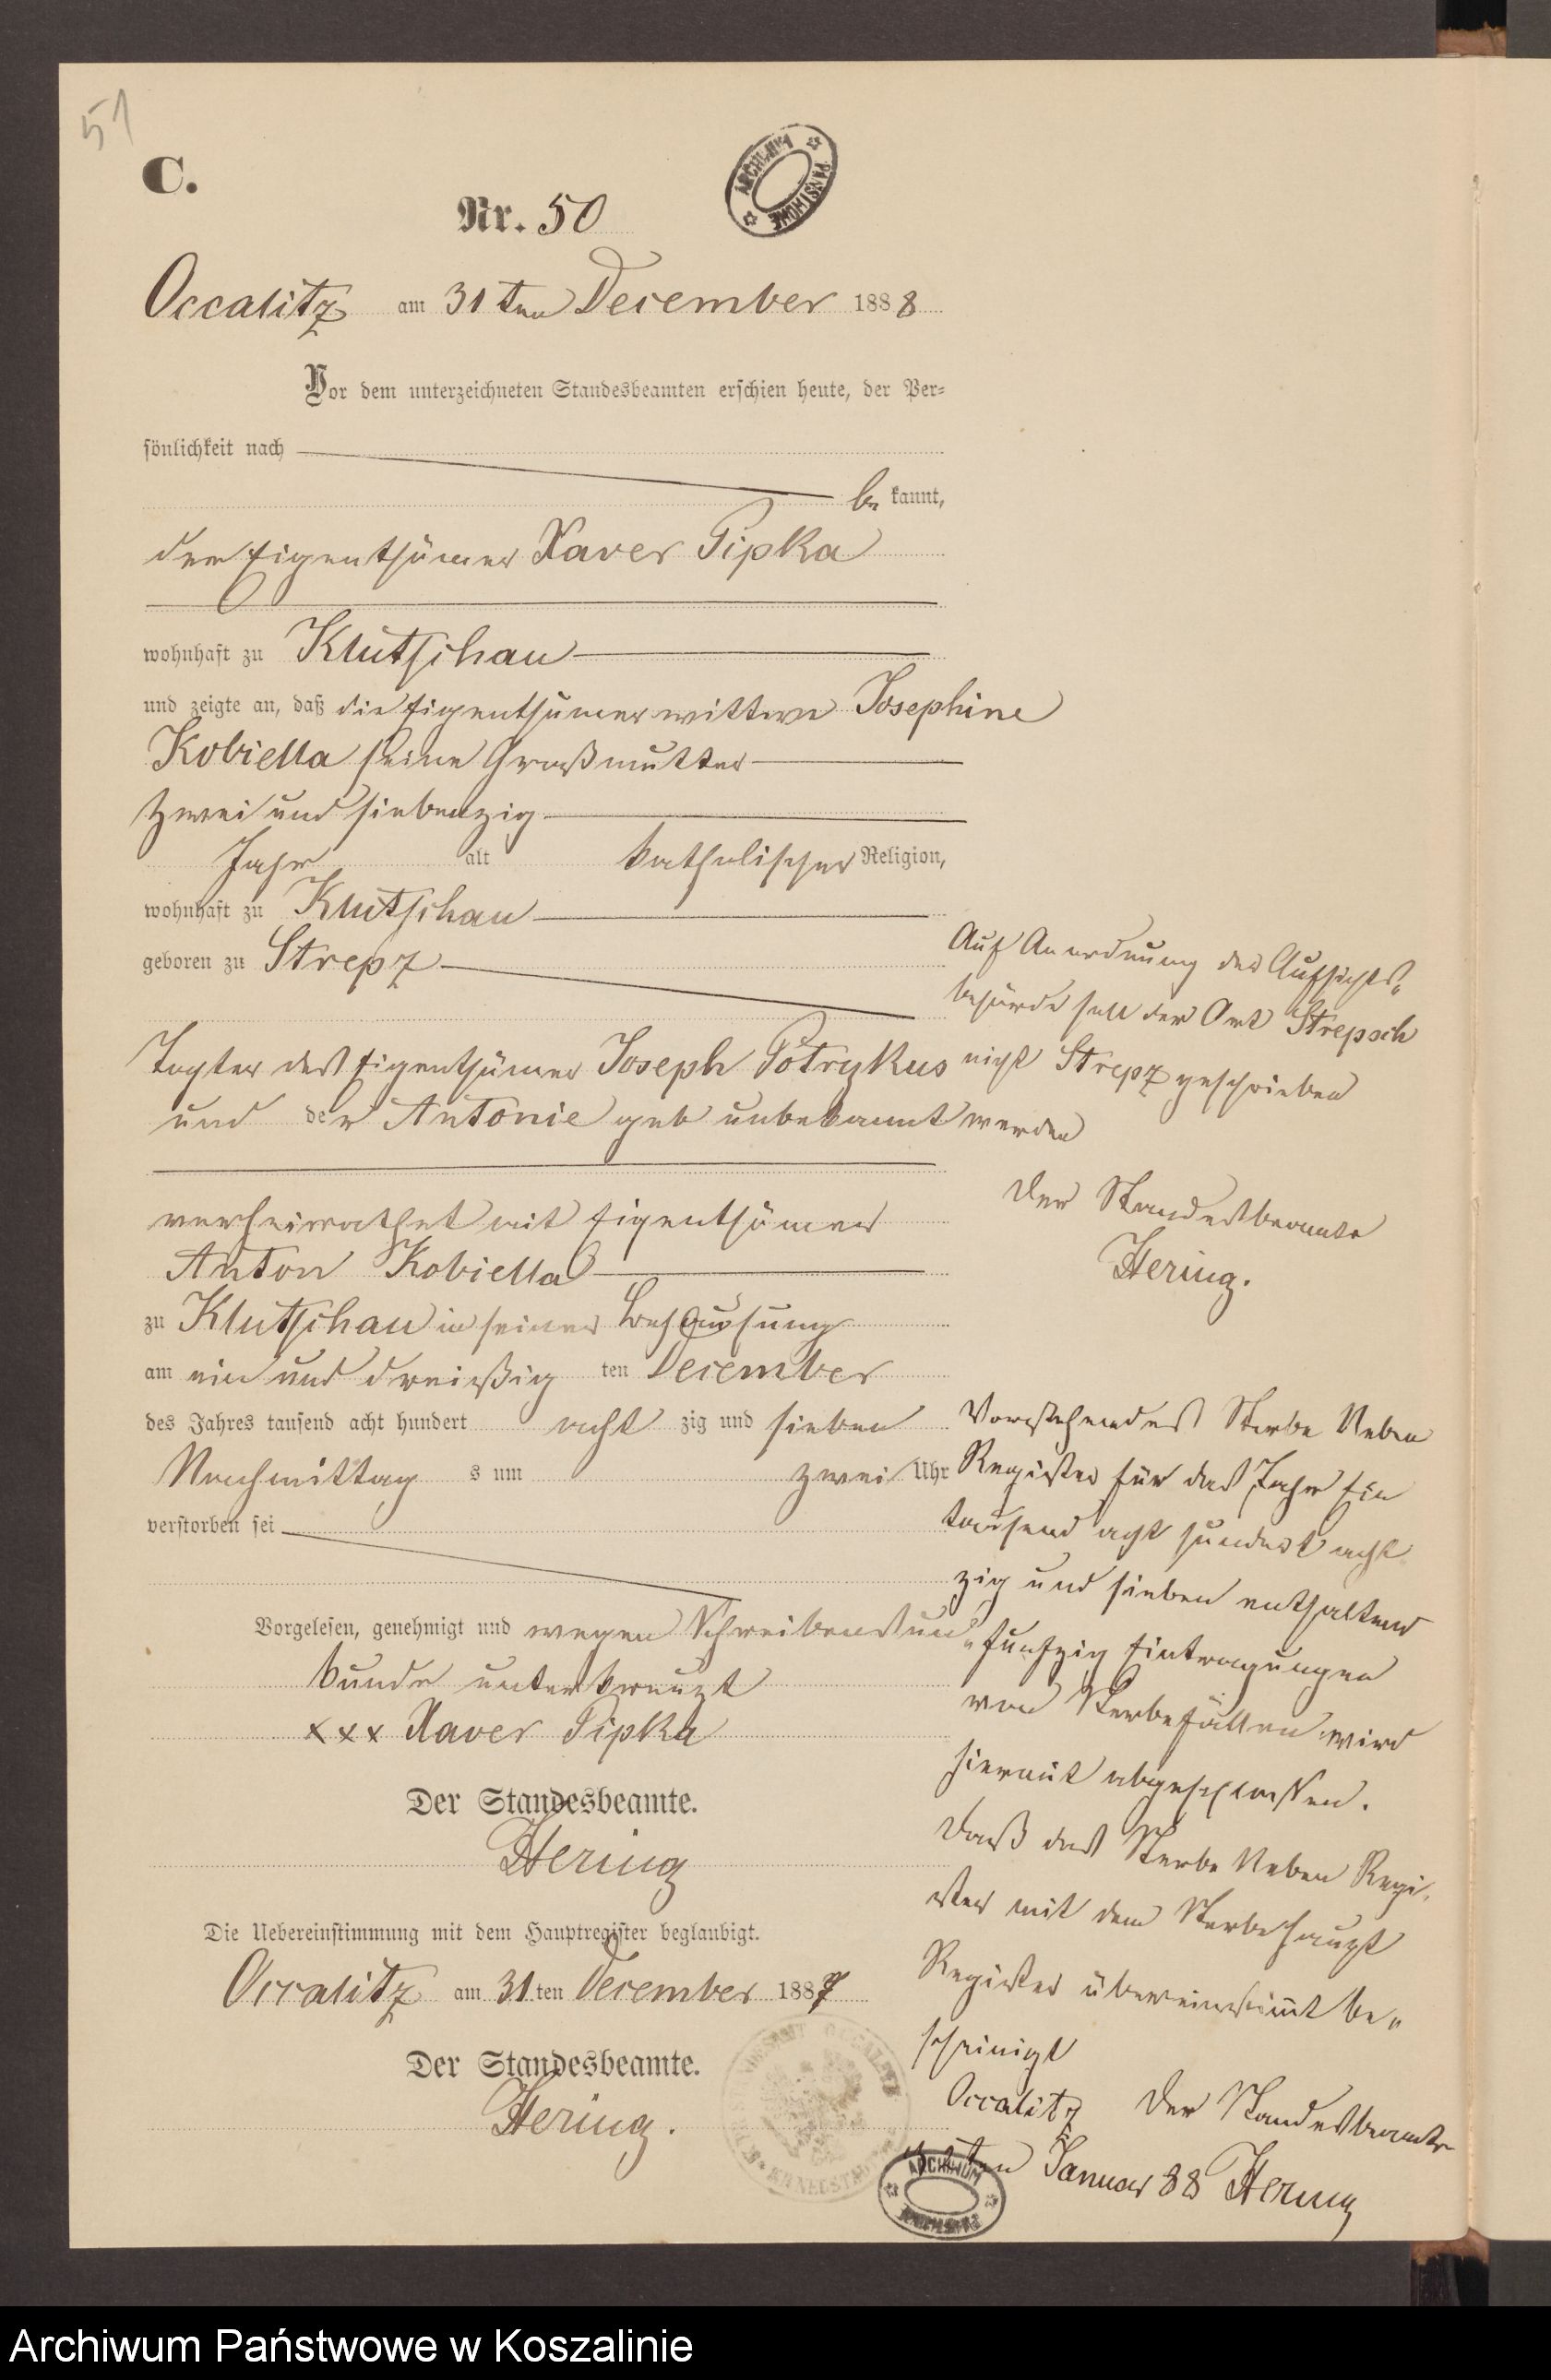 51
C.
ARCHIWUM PAŃSTWOWE
Nr. 50
Occalitz am 31ten December 1888
Vor dem unterzeichneten Standesbeamten erschien heute, der Per-
sönlichkeit nach
be kannt,
der Eigenthümer Xaver Pipka
wohnhaft zu Klutschau
und zeigte an, daß die Eigenthümerwittwe Josephine
Kobiella seine Großmutter
zwei und siebenzig
Jahr alt katholischer Religion,
wohnhaft zu Klutschau
geboren zu Strepz
Tochter des Eigenthümer Joseph Pötrykus
und der Antonie geb unbekannt
verheirathet mit Eigenthümer
Anton Kobiella
zu Klutschau in seiner Behausung
am ein und dreißig ten December
des Jahres tausend acht hundert acht zig und sieben
Nachmittag s um zwei Uhr
verstorben sei
Vorgelesen, genehmigt und wegen Schreibensun-
kunde unterkreuzt
xxx Xaver Pipka
Der Standesbeamte.
Hering
Die Uebereinstimmung mit dem Hauptregister beglaubigt.
Occalitz am 31.ten December 1887
Der Standesbeamte.
Hering.
Auf Anordnung der Aufsichts-
behörde soll der Ort Strepsch
nicht Strepz geschrieben
werden
Der Standesbeamte
Hering.
Vorstehendes Sterbe Neben
Register für das Jahr Ein
tausend acht hundert acht
zig und sieben enthaltend
funfzig Eintragungen
von Sterbefällen wird
hiermit abgeschlossen.
Daß das Sterbe Neben Regi-
ster mit dem Sterbehaupt
Register übereinstimmt be-
scheinigt
Occalitz Der Standesbeamte
ten Januar 88 Hering
ARCHIWUM
Archiwum Państwowe w Koszalinie